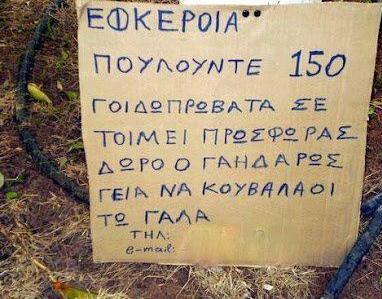 ΕΦΚΕΡΟΙΑ
ΠΟΥΛΟΥΝΤΕ 150
ΓΟΙΔΩΠΡΩΒΑΤΑ ΣΕ
ΤΟΙΜΕΙ ΠΡΟΣΦΩΡΑΣ
ΔΩΡΟ Ο ΓΑΗΔΑΡΩΣ
ΓΕΙΑ ΝΑ ΚΟΥΒΑΛΑΟΙ
ΤΩ ΓΑΛΑ
ΤΗΛ:
e-mail: